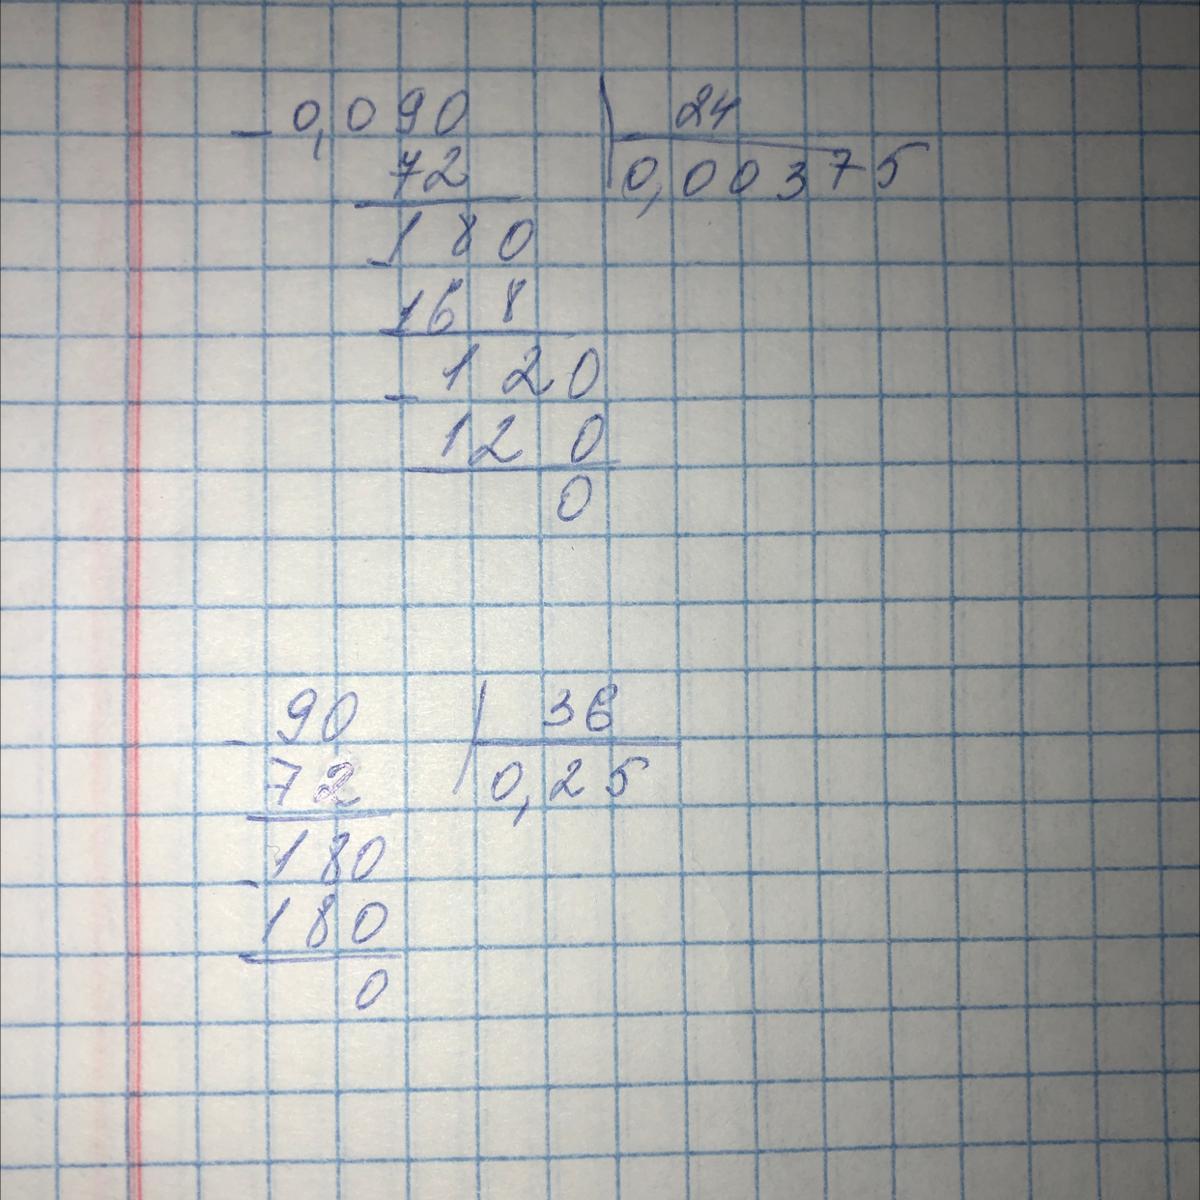 - 0,090 24
72 0,00375
- 180
168
- 120
120
0
- 90 36
72 0,25
- 180
180
0